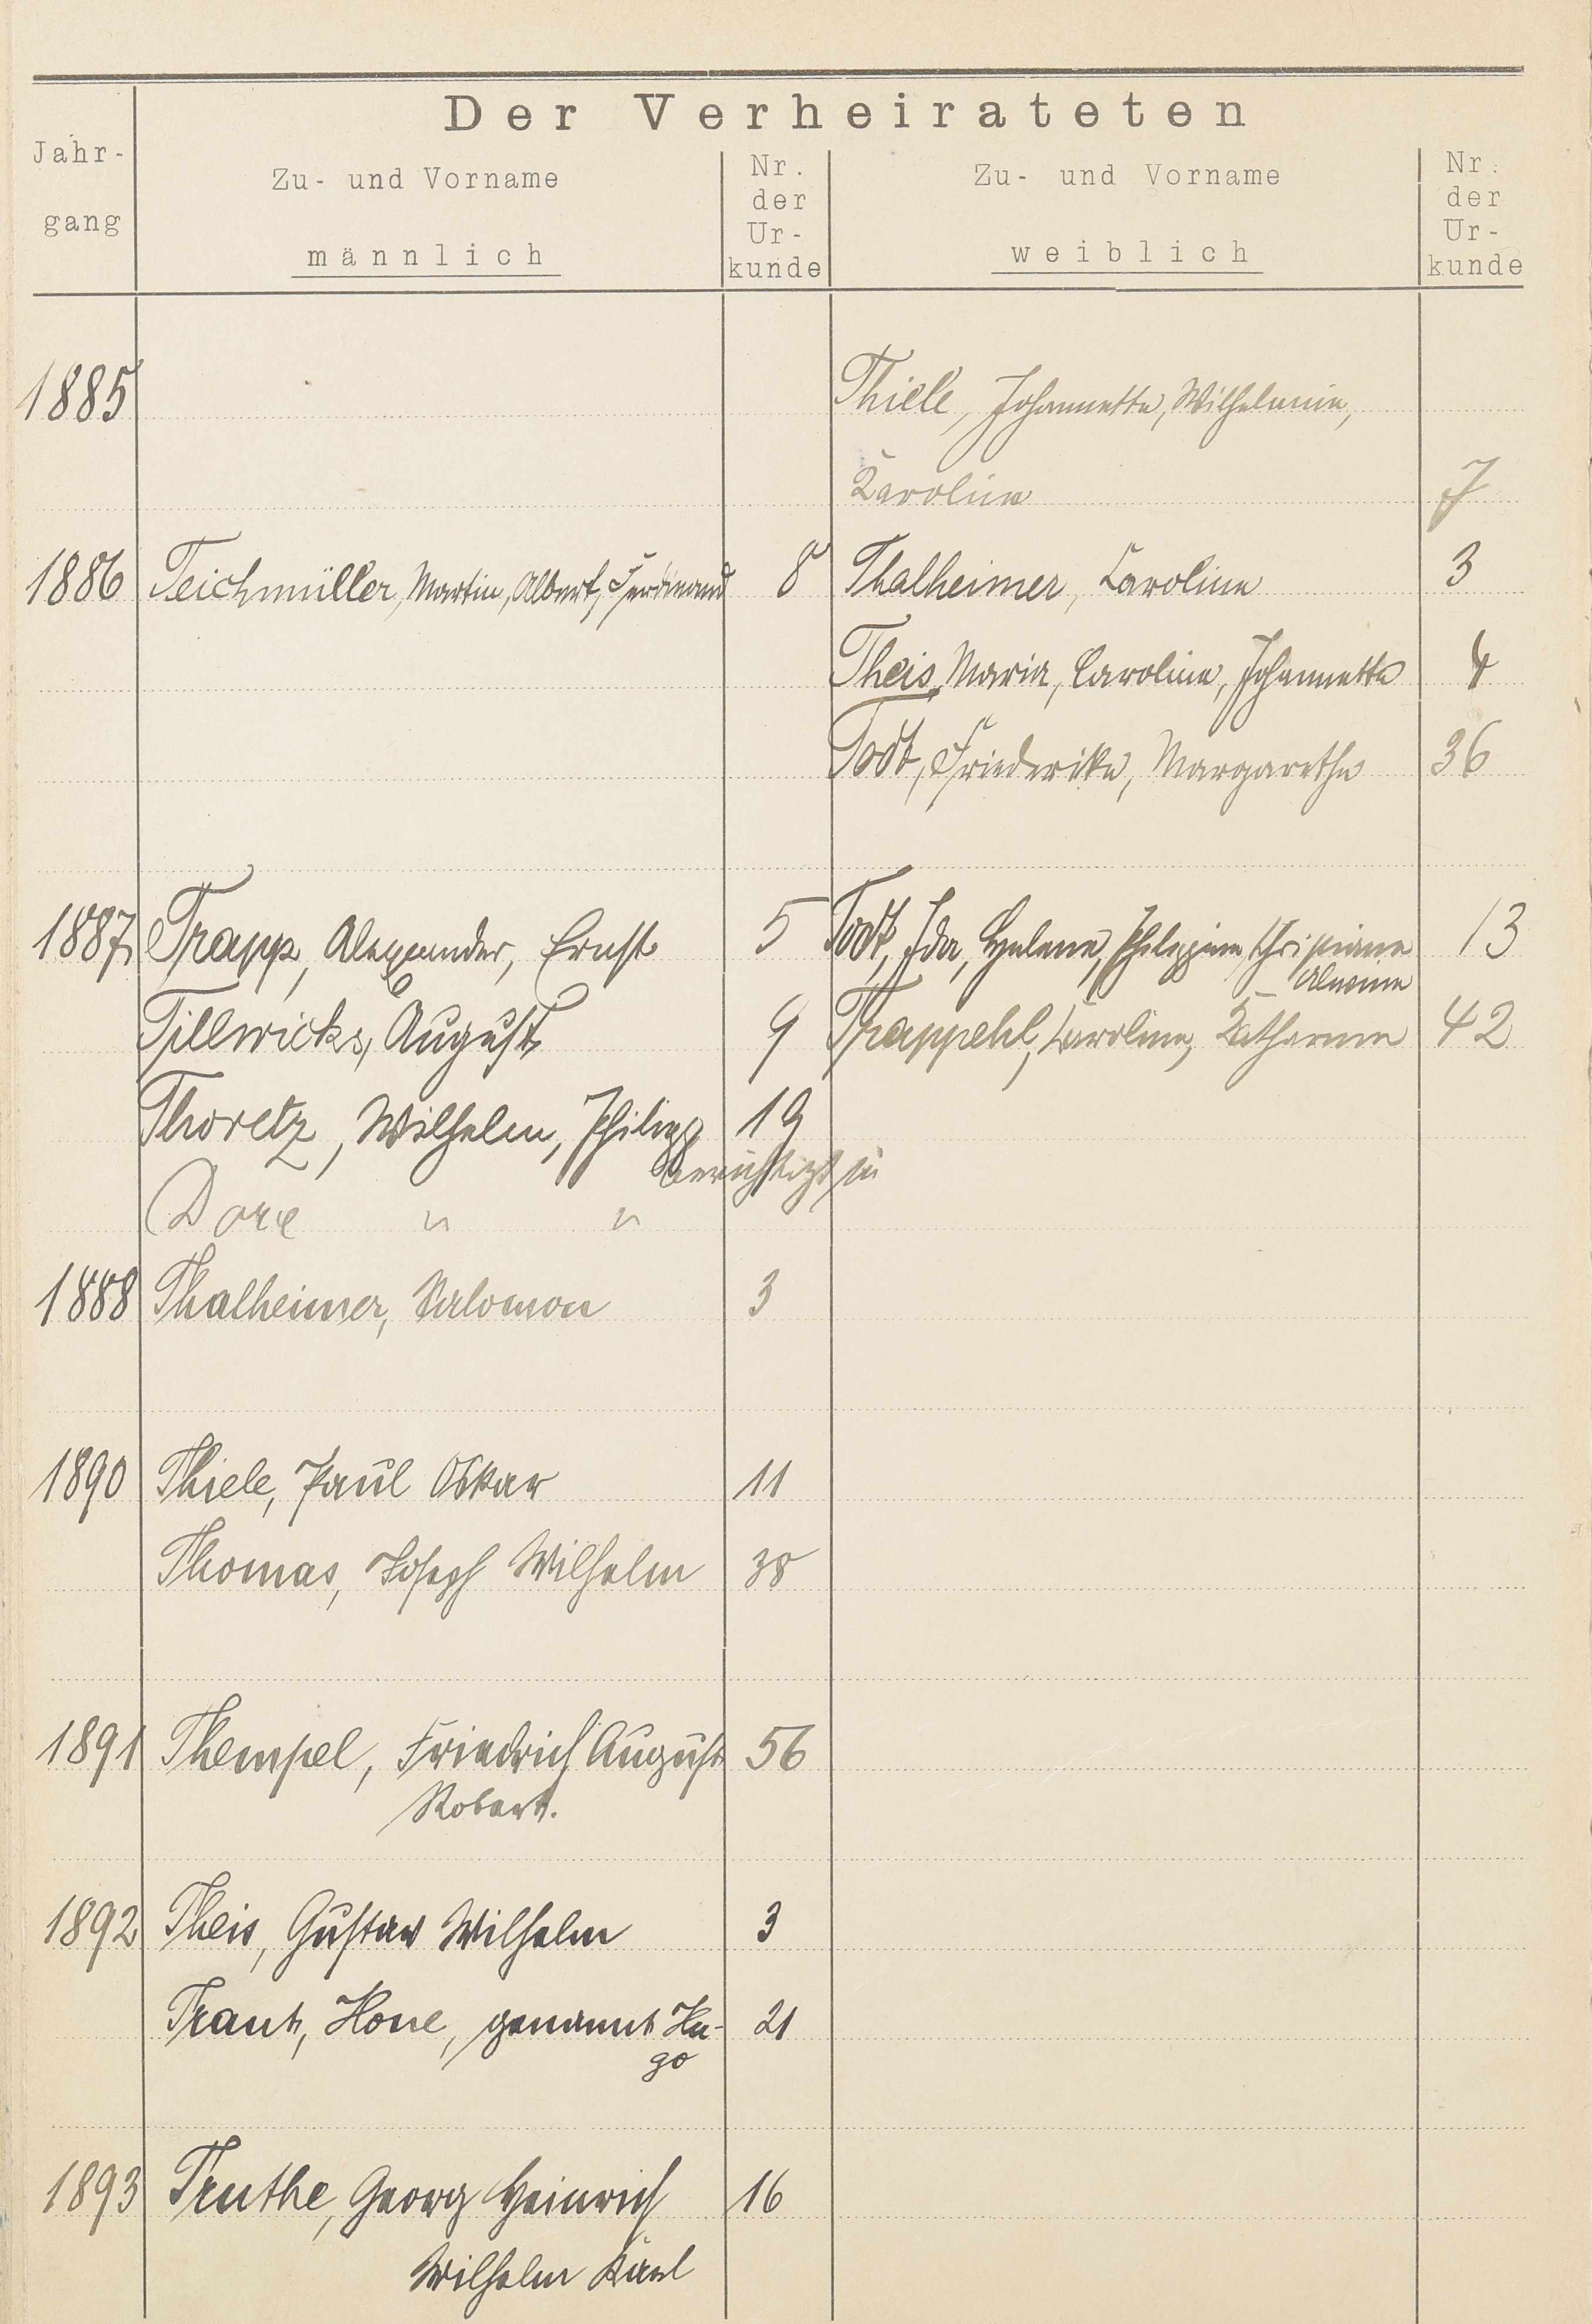 Der Verheirateten
Jahr-
gang
Zu- und Vorname
männlich
Nr.
der
Ur-
kunde
Zu- und Vorname
weiblich
Nr.
der
Ur-
kunde
1885 Thiele, Johannette, Wilhelmine,
Karoline 7
1886 Teichmüller, Martin, Albert, Ferdinand 8 Thalheimer, Caroline 3
Theis, Maria, Caroline, Johannette 4
Todt, Friederike, Margarethe 36
1887 Trapp, Alexander, Ernst 5 Todt, Ida, Helene, Philippine, Christiane 13
Alwine
Tillwicks, August 9 Trappehl, Karoline, Katharine 42
Thoretz, Wilhelm, Philipp 19
berichtigt in
Dore " "
1888 Thalheimer, Salomon 3
1890 Thiele, Paul Oskar 11
Thomas, Joseph Wilhelm 38
1891 Thempel, Friedrich August 56
Robert.
1892 Theis, Gustav Wilhelm 3
Traut, Hone, genannt Hu- 21
go
1893 Truthe, Georg Heinrich 16
Wilhelm Karl